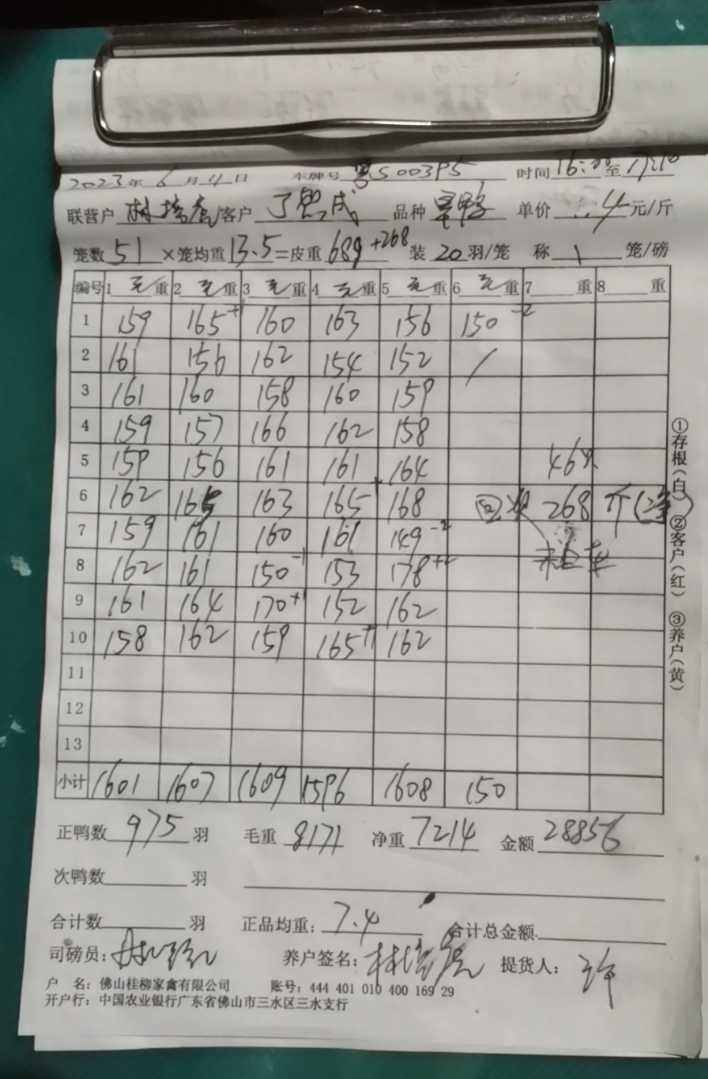 2023年6月4日 车牌号 粤S003P5 时间16:00至17:10
联营户 客户 品种 单价 4元/斤
笼数51×笼均重13.5=皮重689+268 装20羽/笼 称1笼/磅
编号 1 毛重 2 毛重 3 毛重 4 毛重 5 毛重 6 毛重 7 重 8 重
1 159 165+1 160 163 156 150-2
2 161 156 162 154 152 /
3 161 160 158 160 159
4 159 157 166 162 158
5 159 156 161 161 164
6 162 165 163 165 168 268 斤
7 159 161 160 161 149-2
8 162 161 150-1 153 178+2
9 161 164 170+1 152 162
10 158 162 159 165+1 162
11
12
13
小计 1601 1607 1609 1596 1608 150
①存根(白) ②客户(红) ③养户(黄)
正鸭数975羽 毛重8171 净重7214 金额28856
次鸭数 羽
合计数 羽 正品均重:7.4 合计总金额
司磅员: 养户签名: 提货人:许
户 名:佛山桂柳家禽有限公司 账号:444 401 010 400 169 29
开户行:中国农业银行广东省佛山市三水区三水支行